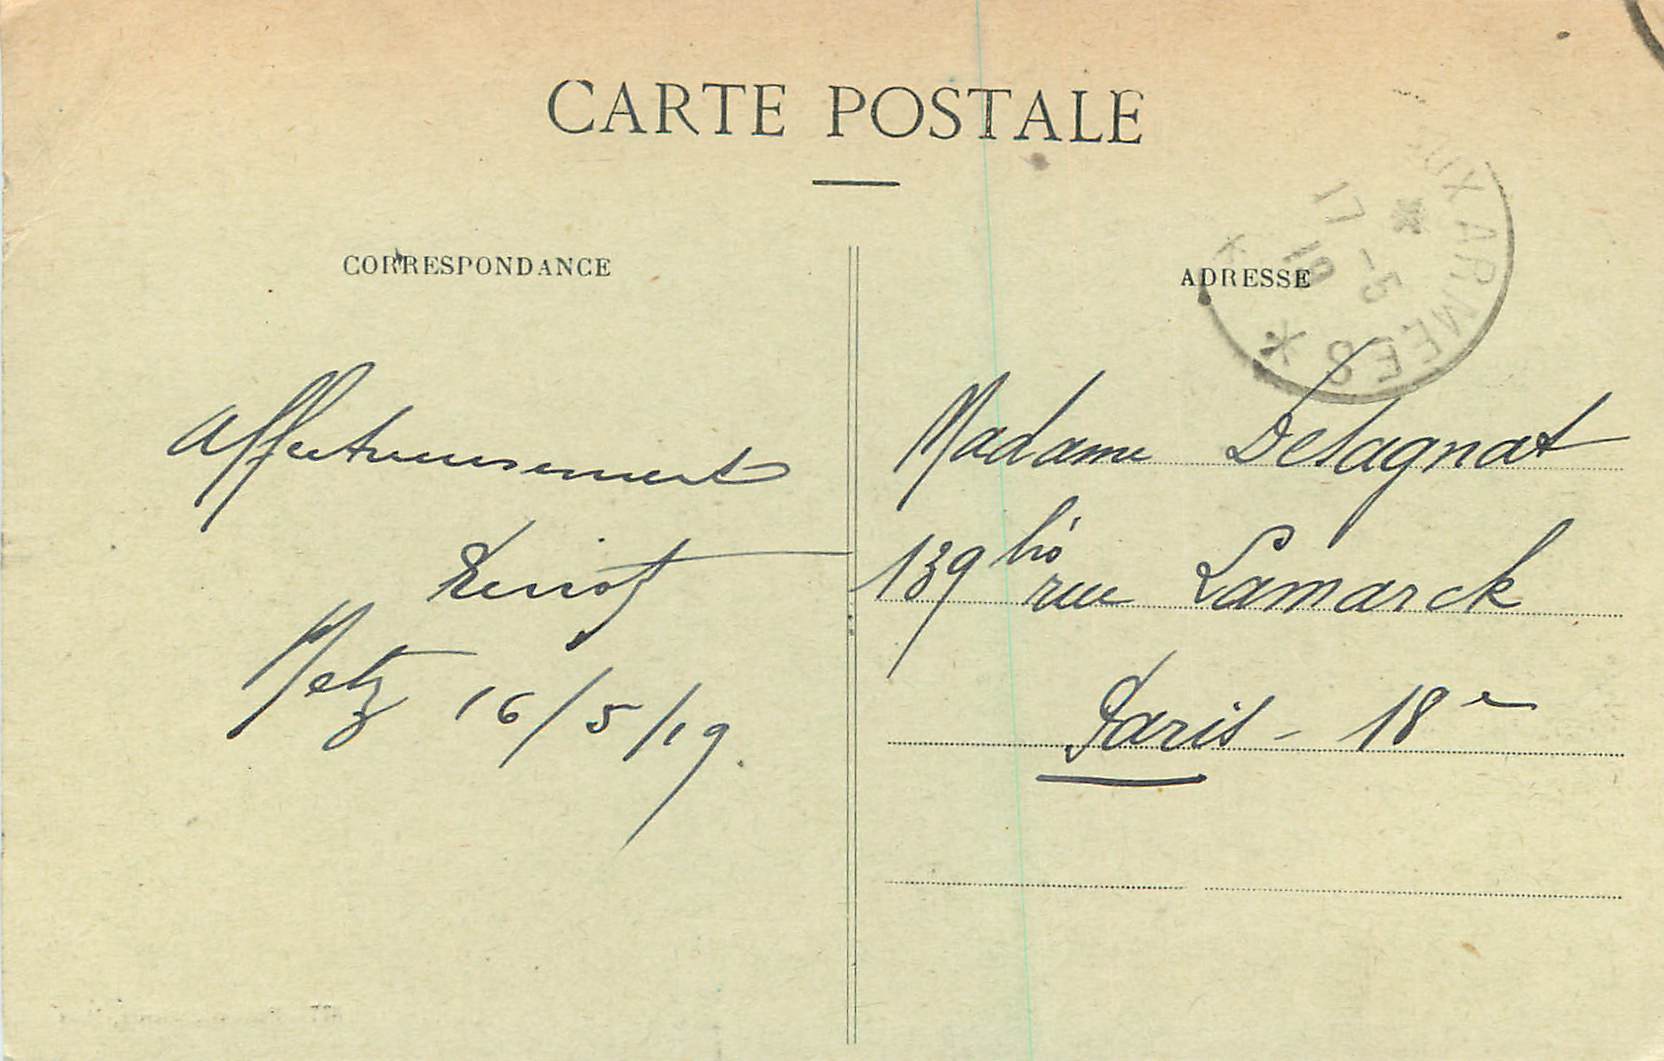 CARTE POSTALE
CORRESPONDANCE
ADRESSE
AUX ARMEES *
17 -5
19
Affectueusement
Metz 16/5/19.
Madame Delagnat
139 bis rue Lamarck
Paris - 18e